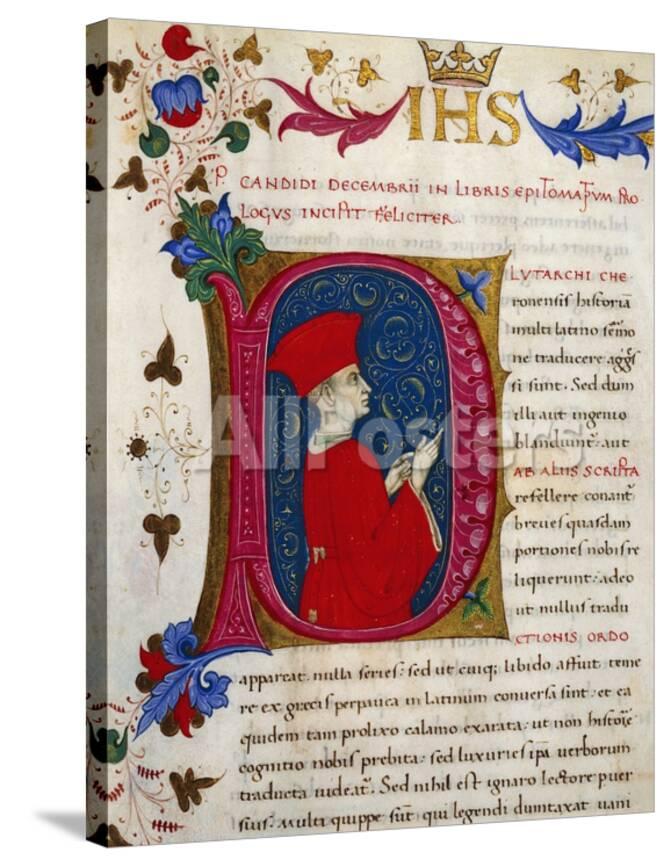 IHS
P. CANDIDI DECEMBRII IN LIBRIS EPITOMATUM PRO
LOGVS INCIPIT FELICITER.
P
LVTARCHI CHE
ronensis historiā
multi latino s̄mo
ne traducere aggs̄
si sunt. Sed dum
illi aut ingenio
blandiunt: aut
AB ALIIS SCRIPTA
refellere conant
breues quasdam
portiones nobis re
liquerunt: adeo
ut nullus tradu
CTIONIS ORDO
appareat nulla series: sed ut cuiq; libido affuit teme
re ex grecis perpauca in latinum conuersa sint: et ea
quidem tam prolixo calamo exarata: ut non histoīe
cognitio nobis prebita: sed luxuries ip̄a uerborum
traducta uideat. Sed nihil est ignaro lectore puer
sius. Multi quippe sūt qui legendi dumtaxat uani
AllPosters